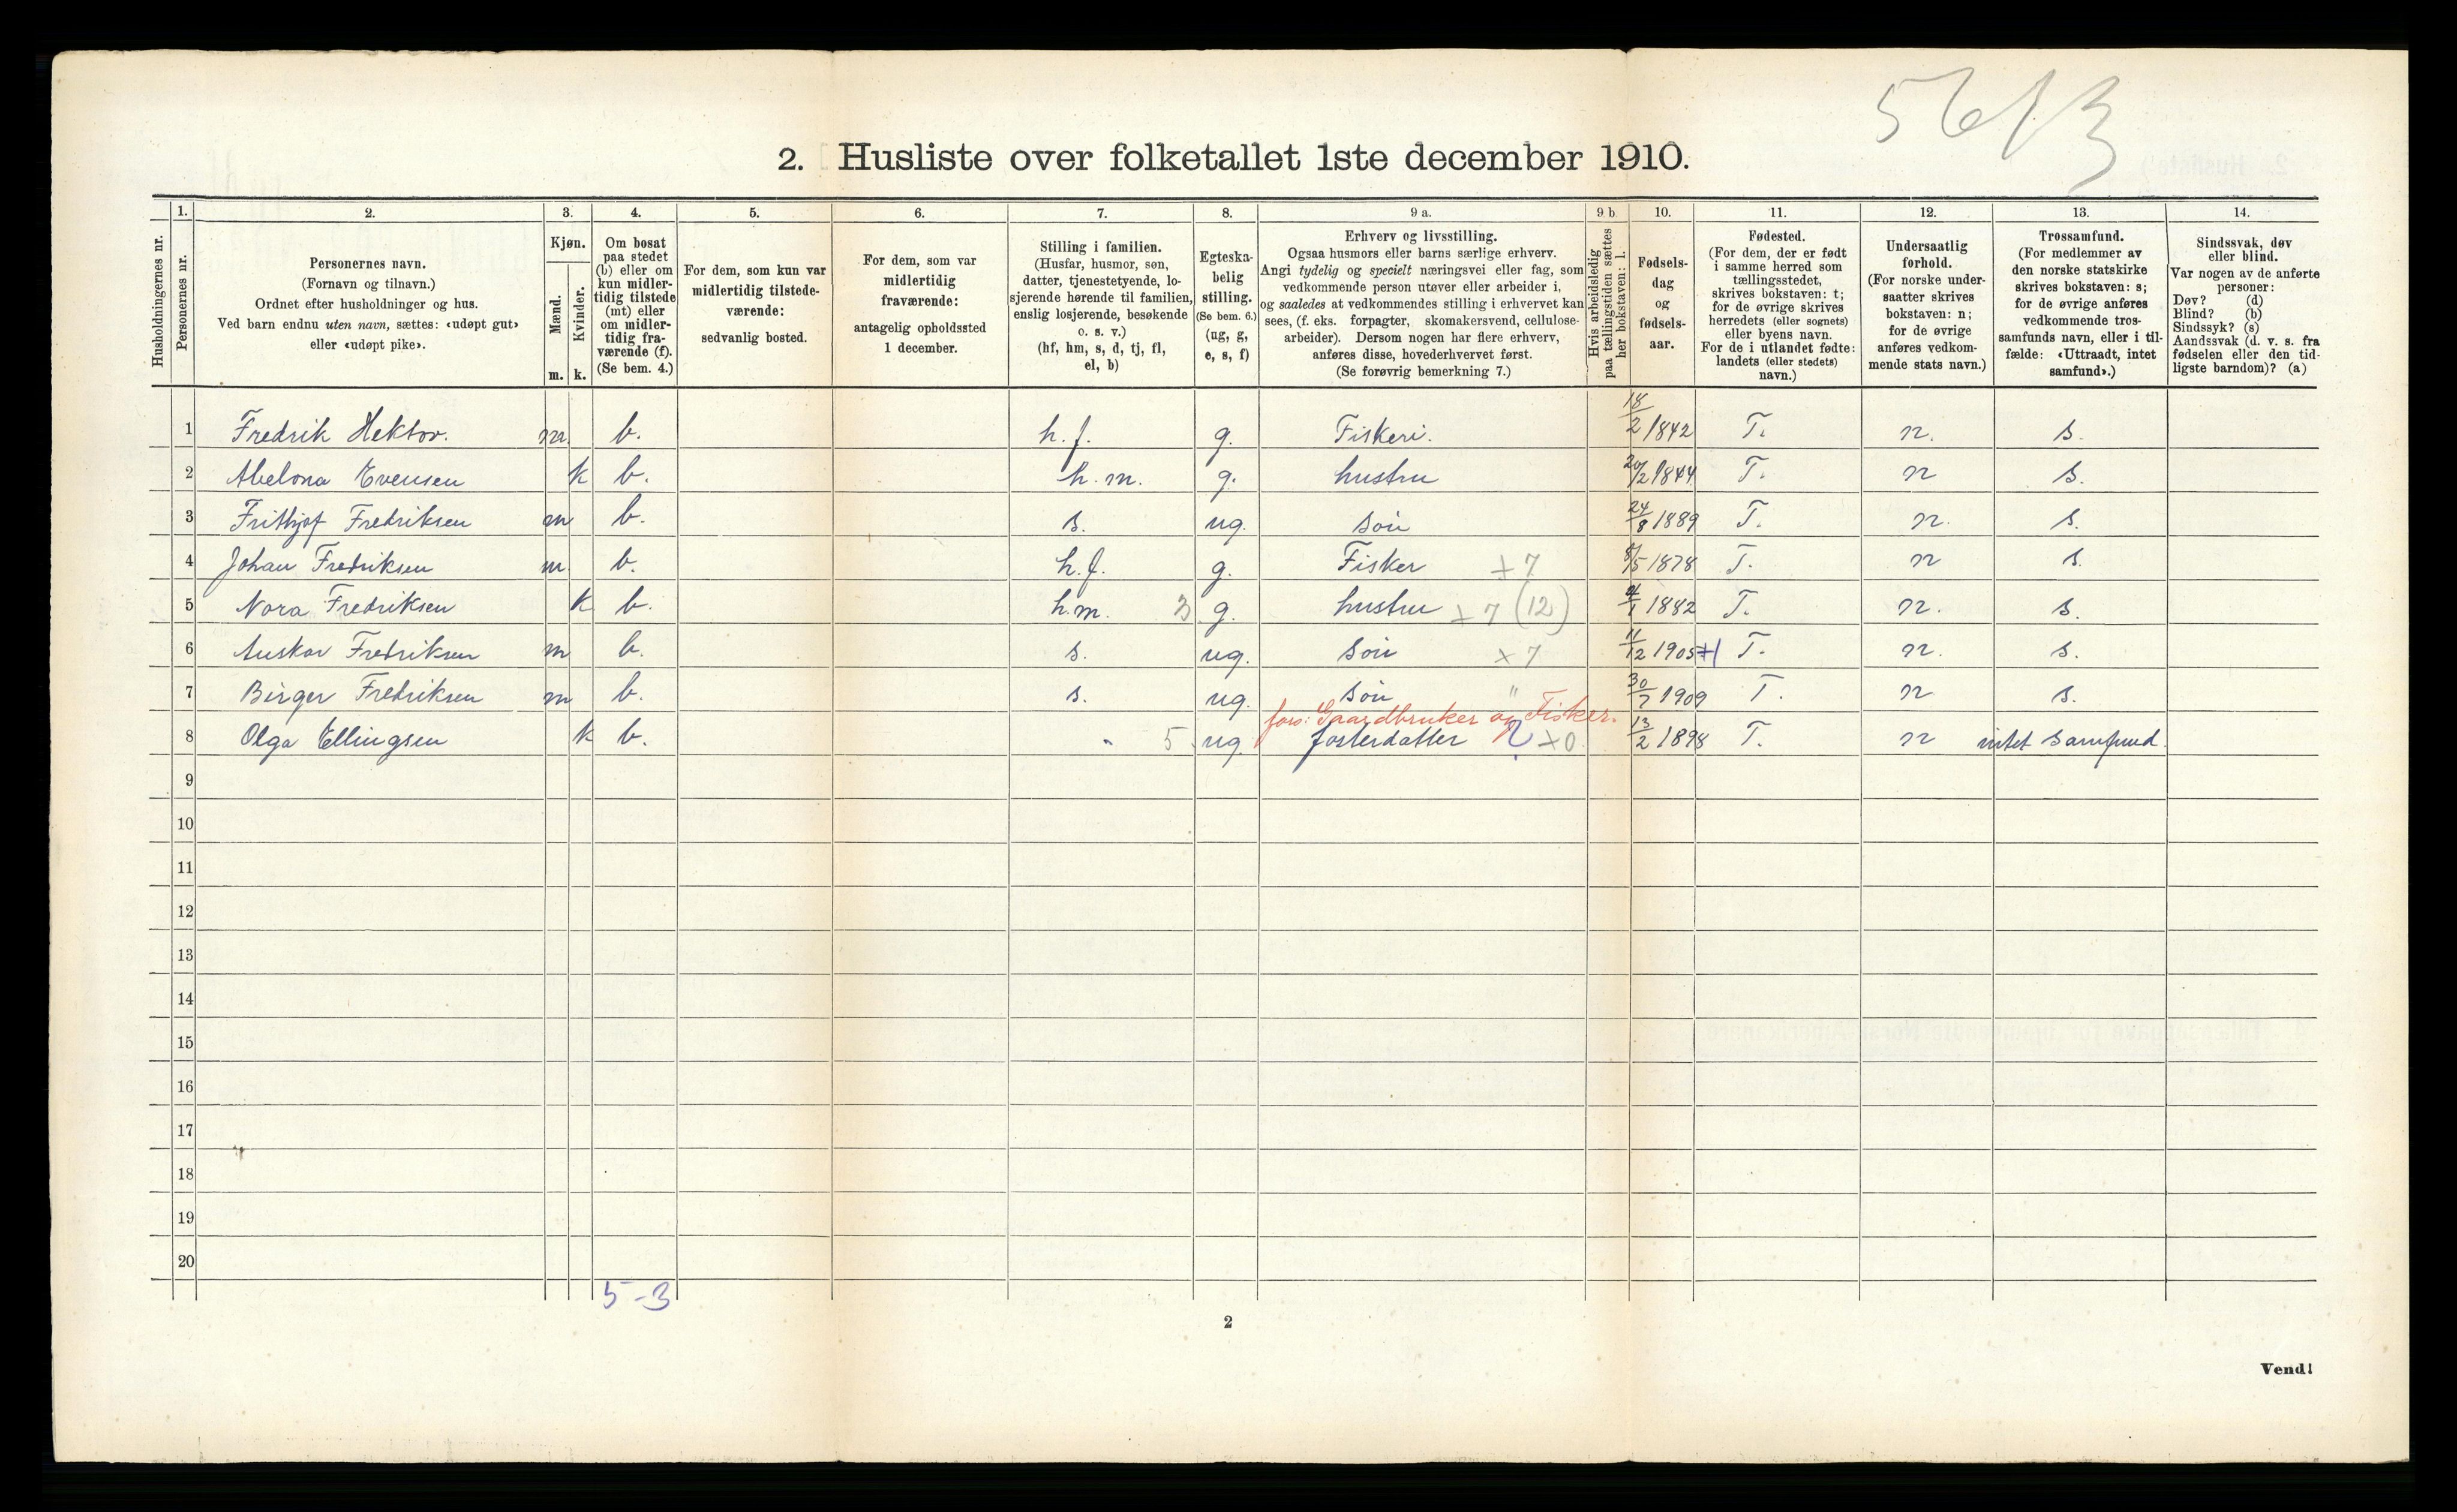 56/3
2. Husliste over folketallet 1ste december 1910.
Husholdningernes nr.
1. Personernes nr.
2. Personernes navn.
(Fornavn og tilnavn.)
Ordnet efter husholdninger og hus.
Ved barn endnu uten navn, sættes: «udøpt gut»
eller «udøpt pike».
3. Kjøn.
Mænd. m.
Kvinder. k.
4. Om bosat
paa stedet
(b) eller om
kun midler-
tidig tilstede
(mt) eller
om midler-
tidig fra-
værende (f).
(Se bem. 4.)
5. For dem, som kun var
midlertidig tilstede-
værende:
sedvanlig bosted.
6. For dem, som var
midlertidig
fraværende:
antagelig opholdssted
1 december.
7. Stilling i familien.
(Husfar, husmor, søn,
datter, tjenestetyende, lo-
sjerende hørende til familien,
enslig losjerende, besøkende
o. s. v.)
(hf, hm, s, d, tj, fl,
el, b)
8. Egteska-
belig
stilling.
(Se bem. 6.)
(ug, g,
e, s, f)
9 a. Erhverv og livsstilling.
Ogsaa husmors eller barns særlige erhverv.
Angi tydelig og specielt næringsvei eller fag, som
vedkommende person utøver eller arbeider i,
og saaledes at vedkommendes stilling i erhvervet kan
sees, (f. eks. forpagter, skomakersvend, cellulose-
arbeider). Dersom nogen har flere erhverv,
anføres disse, hovederhvervet først.
(Se forøvrig bemerkning 7.)
9 b. Hvis arbeidsledig
paa tællingstiden sættes
her bokstaven: l.
10. Fødsels-
dag
og
fødsels-
aar.
11. Fødested.
(For dem, der er født
i samme herred som
tællingsstedet,
skrives bokstaven: t;
for de øvrige skrives
herredets (eller sognets)
eller byens navn.
For de i utlandet fødte:
landets (eller stedets)
navn.)
12. Undersaatlig
forhold.
(For norske under-
saatter skrives
bokstaven: n;
for de øvrige
anføres vedkom-
mende stats navn.)
13. Trossamfund.
(For medlemmer av
den norske statskirke
skrives bokstaven: s;
for de øvrige anføres
vedkommende tros-
samfunds navn, eller i til-
fælde: «Uttraadt, intet
samfund».)
14. Sindssvak, døv
eller blind.
Var nogen av de anførte
personer:
Døv? (d)
Blind? (b)
Sindssyk? (s)
Aandssvak (d. v. s. fra
fødselen eller den tid-
ligste barndom)? (a)
1 Fredrik Hektor. m b. h. f. g. Fiskeri. 18/2 1842 T. n. s.
2 Abelona Evensen k b. h. m. g. hustru 20/2 1844 T. n s.
3 Frithjof Fredriksen m b. s. ug. søn 24/8 1889 T. n. s.
4 Johan Fredriksen m. b. h. f. g. Fisker +7 8/5 1878 T. n s.
5 Nora Fredriksen k b. h. m. 3 g. hustru +7 (12) 4/1 1882 T. n. s.
6 Anskar Fredriksen m b. s. ug. søn x7 11/12 1905 +1 T. n. s.
7 Birger Fredriksen m b. s. ug. søn " 30/7 1909 T. n s.
fors: Gaardbruker og Fisker.
8 Olga Ellingsen k b. " 5 ug fosterdatter +0 13/2 1898 T. n intet samfund
9
10
11
12
13
14
15
16
17
18
19
20
5-3
2
Vend!